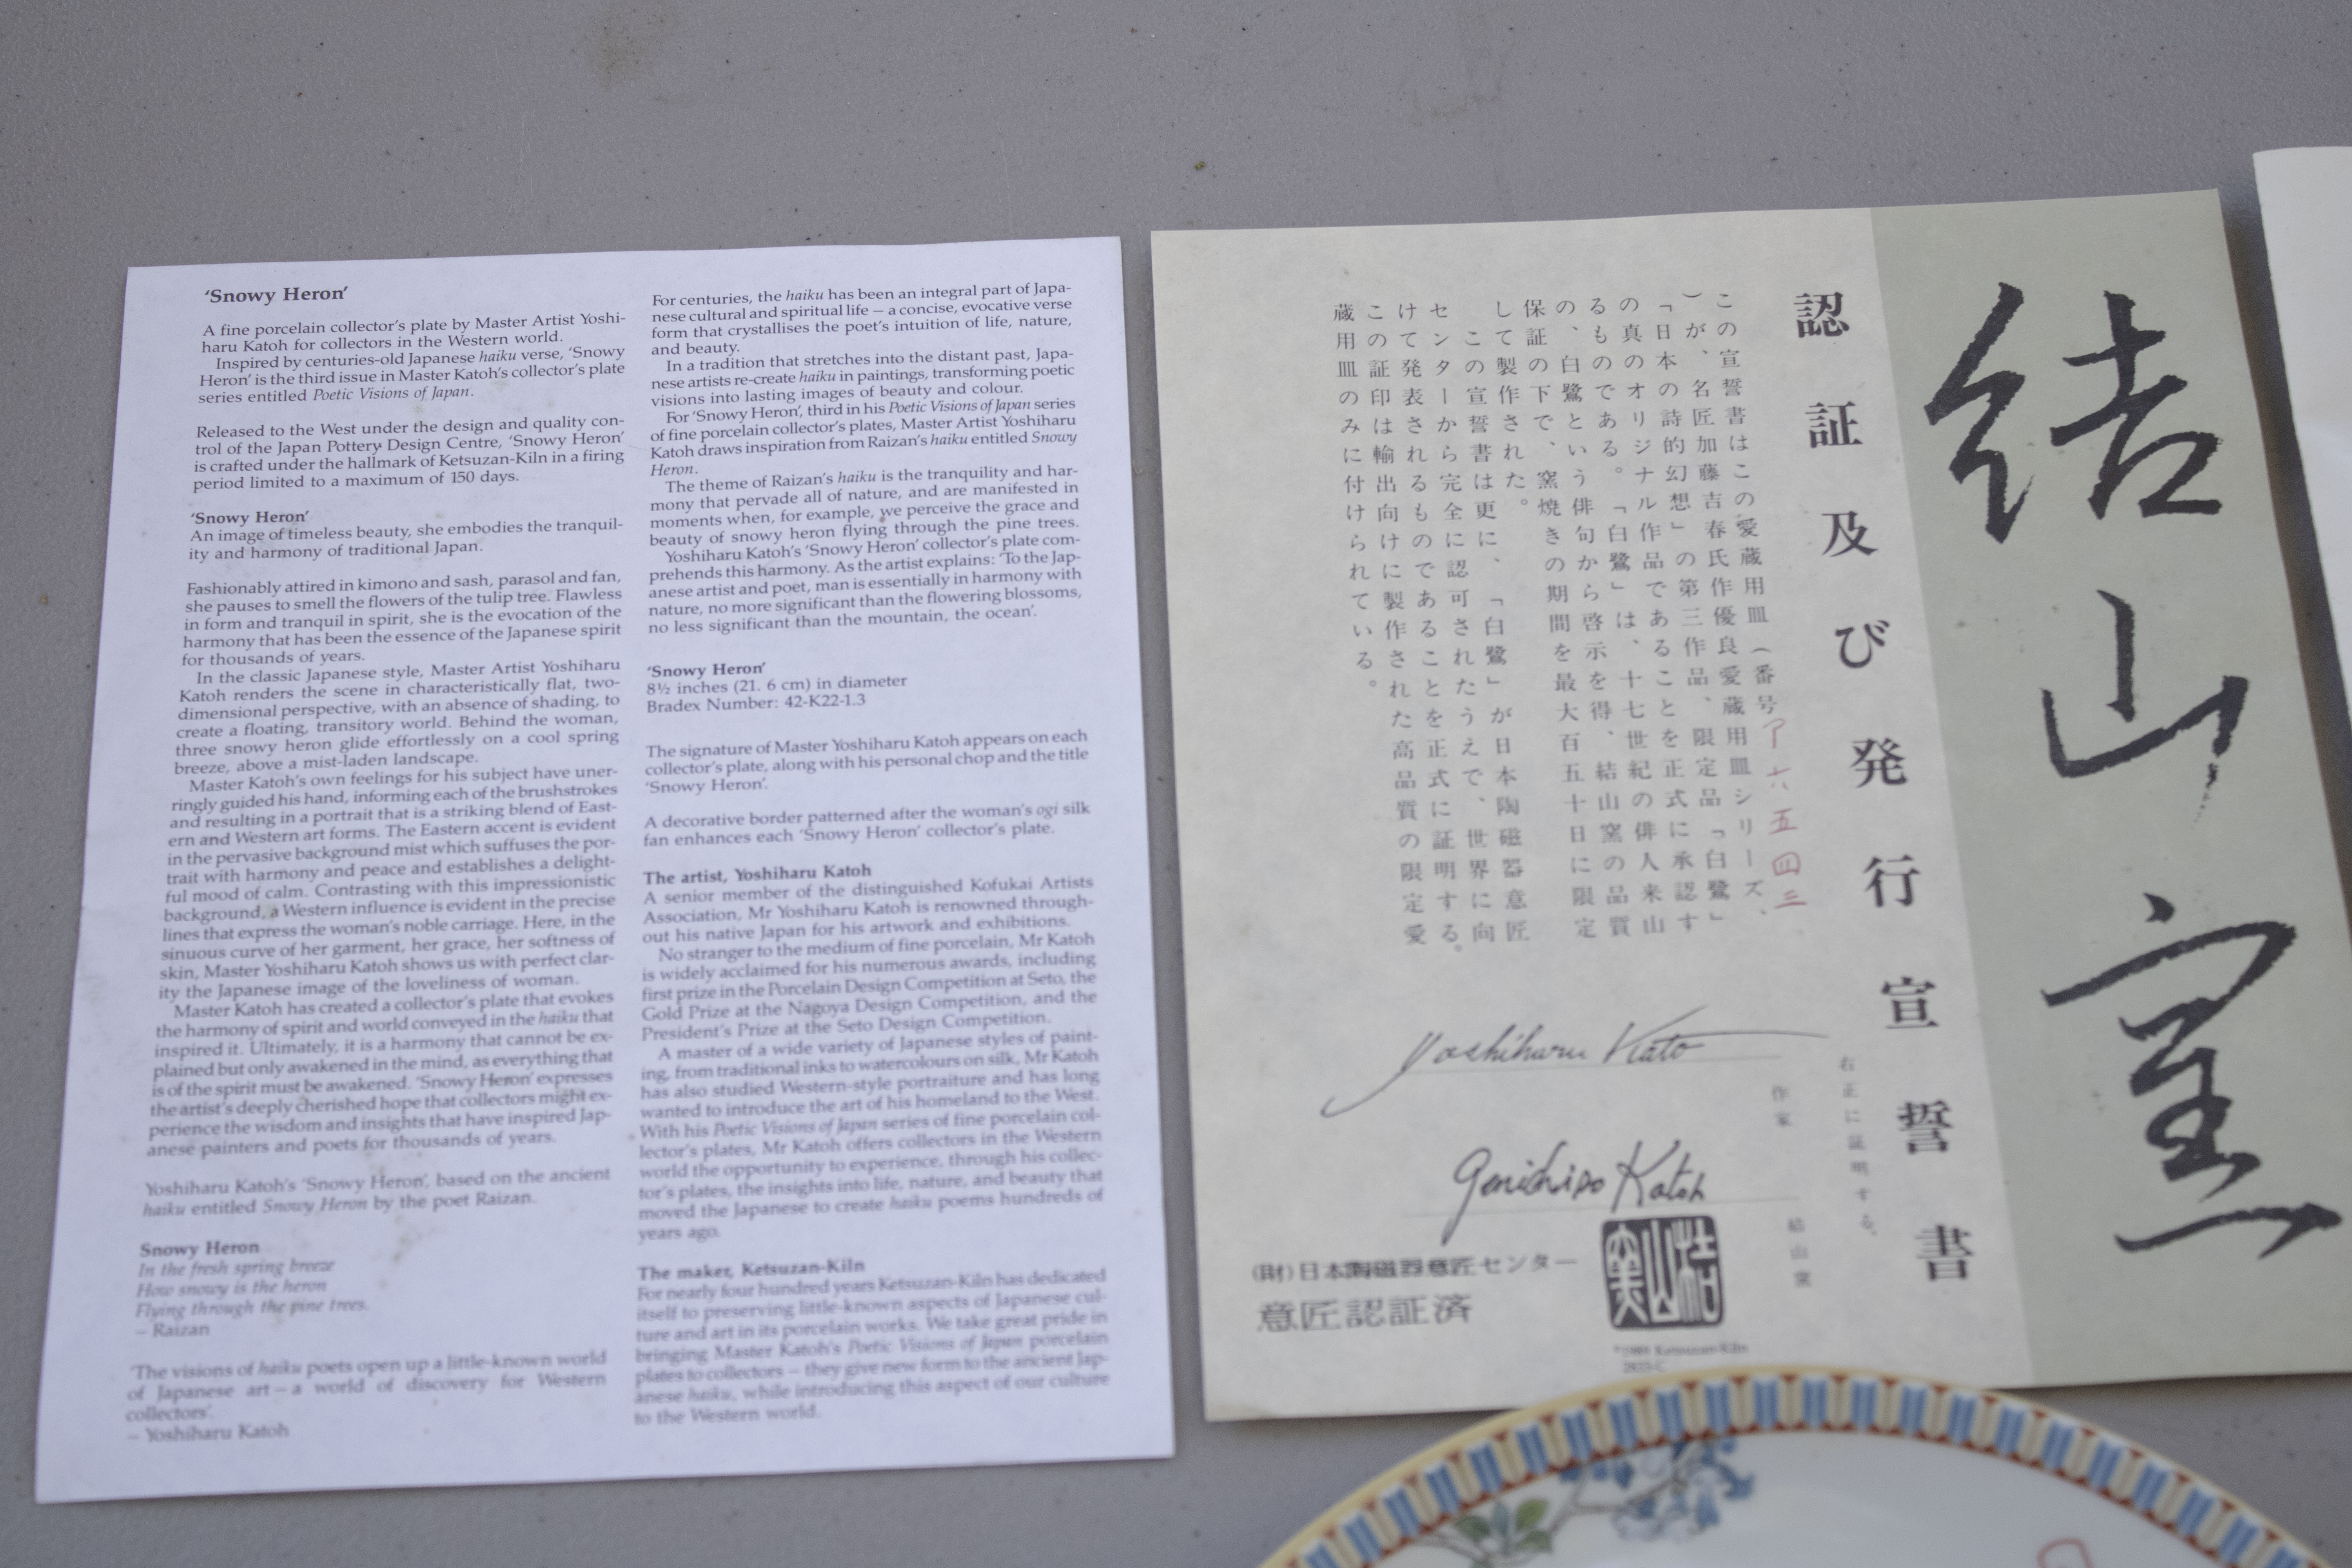 'Snowy Heron'
A fine porcelain collector's plate by Master Artist Yoshi-
haru Katoh for collectors in the Western world.
Inspired by centuries-old Japanese haiku verse, 'Snowy
Heron' is the third issue in Master Katoh's collector's plate
series entitled Poetic Visions of Japan.
Released to the West under the design and quality con-
trol of the Japan Pottery Design Centre, 'Snowy Heron'
is crafted under the hallmark of Ketsuzan-Kiln in a firing
period limited to a maximum of 150 days.
'Snowy Heron'
An image of timeless beauty, she embodies the tranquil-
ity and harmony of traditional Japan.
Fashionably attired in kimono and sash, parasol and fan,
she pauses to smell the flowers of the tulip tree. Flawless
in form and tranquil in spirit, she is the evocation of the
harmony that has been the essence of the Japanese spirit
for thousands of years.
In the classic Japanese style, Master Artist Yoshiharu
Katoh renders the scene in characteristically flat, two-
dimensional perspective, with an absence of shading, to
create a floating, transitory world. Behind the woman,
three snowy heron glide effortlessly on a cool spring
breeze, above a mist-laden landscape.
Master Katoh's own feelings for his subject have uner-
ringly guided his hand, informing each of the brushstrokes
and resulting in a portrait that is a striking blend of East-
ern and Western art forms. The Eastern accent is evident
in the pervasive background mist which suffuses the por-
trait with harmony and peace and establishes a delight-
ful mood of calm. Contrasting with this impressionistic
background, a Western influence is evident in the precise
lines that express the woman's noble carriage. Here, in the
sinuous curve of her garment, her grace, her softness of
skin, Master Yoshiharu Katoh shows us with perfect clar-
ity the Japanese image of the loveliness of woman.
Master Katoh has created a collector's plate that evokes
the harmony of spirit and world conveyed in the haiku that
inspired it. Ultimately, it is a harmony that cannot be ex-
plained but only awakened in the mind, as everything that
is of the spirit must be awakened. 'Snowy Heron' expresses
the artist's deeply cherished hope that collectors might ex-
perience the wisdom and insights that have inspired Jap-
anese painters and poets for thousands of years.
Yoshiharu Katoh's 'Snowy Heron', based on the ancient
haiku entitled Snowy Heron by the poet Raizan.
Snowy Heron
In the fresh spring breeze
How snowy is the heron
Flying through the pine trees.
– Raizan
'The visions of haiku poets open up a little-known world
of Japanese art – a world of discovery for Western
collectors'.
– Yoshiharu Katoh
For centuries, the haiku has been an integral part of Japa-
nese cultural and spiritual life – a concise, evocative verse
form that crystallises the poet's intuition of life, nature,
and beauty.
In a tradition that stretches into the distant past, Japa-
nese artists re-create haiku in paintings, transforming poetic
visions into lasting images of beauty and colour.
For 'Snowy Heron', third in his Poetic Visions of Japan series
of fine porcelain collector's plates, Master Artist Yoshiharu
Katoh draws inspiration from Raizan's haiku entitled Snowy
Heron.
The theme of Raizan's haiku is the tranquility and har-
mony that pervade all of nature, and are manifested in
moments when, for example, we perceive the grace and
beauty of snowy heron flying through the pine trees.
Yoshiharu Katoh's 'Snowy Heron' collector's plate com-
prehends this harmony. As the artist explains: 'To the Jap-
anese artist and poet, man is essentially in harmony with
nature, no more significant than the flowering blossoms,
no less significant than the mountain, the ocean'.
'Snowy Heron'
8½ inches (21. 6 cm) in diameter
Bradex Number: 42-K22-1.3
The signature of Master Yoshiharu Katoh appears on each
collector's plate, along with his personal chop and the title
'Snowy Heron'.
A decorative border patterned after the woman's ogi silk
fan enhances each 'Snowy Heron' collector's plate.
The artist, Yoshiharu Katoh
A senior member of the distinguished Kofukai Artists
Association, Mr Yoshiharu Katoh is renowned through-
out his native Japan for his artwork and exhibitions.
No stranger to the medium of fine porcelain, Mr Katoh
is widely acclaimed for his numerous awards, including
first prize in the Porcelain Design Competition at Seto, the
Gold Prize at the Nagoya Design Competition, and the
President's Prize at the Seto Design Competition.
A master of a wide variety of Japanese styles of paint-
ing, from traditional inks to watercolours on silk, Mr Katoh
has also studied Western-style portraiture and has long
wanted to introduce the art of his homeland to the West.
With his Poetic Visions of Japan series of fine porcelain col-
lector's plates, Mr Katoh offers collectors in the Western
world the opportunity to experience, through his collec-
tor's plates, the insights into life, nature, and beauty that
moved the Japanese to create haiku poems hundreds of
years ago.
The maker, Ketsuzan-Kiln
For nearly four hundred years Ketsuzan-Kiln has dedicated
itself to preserving little-known aspects of Japanese cul-
ture and art in its porcelain works. We take great pride in
bringing Master Katoh's Poetic Visions of Japan porcelain
plates to collectors – they give new form to the ancient Jap-
anese haiku, while introducing this aspect of our culture
to the Western world.
結山窯
認証及び発行宣誓書
この宣誓書はこの愛蔵用皿(番号 六五四三
)が、名匠加藤吉春氏作優良愛蔵用皿シリーズ、
「日本の詩的幻想」の第三作品、限定品「白鷺」
の真のオリジナル作品であることを正式に承認す
るものである。「白鷺」は、十七世紀の俳人来山
の、白鷺という俳句から啓示を得、結山窯の品質
保証の下で、窯焼きの期間を最大百五十日に限定
して製作された。
この宣誓書は更に、「白鷺」が日本陶磁器意匠
センターから完全に認可されたうえで、世界に向
けて発表されるものであることを正式に証明する。
この証印は輸出向けに製作された高品質の限定愛
蔵用皿のみに付けられている。
右正に証明する。
作家
Yoshiharu Kato
結山窯
Genichiro Katoh
(財)日本陶磁器意匠センター
意匠認証済
結山窯
Ketsuzan-Kiln